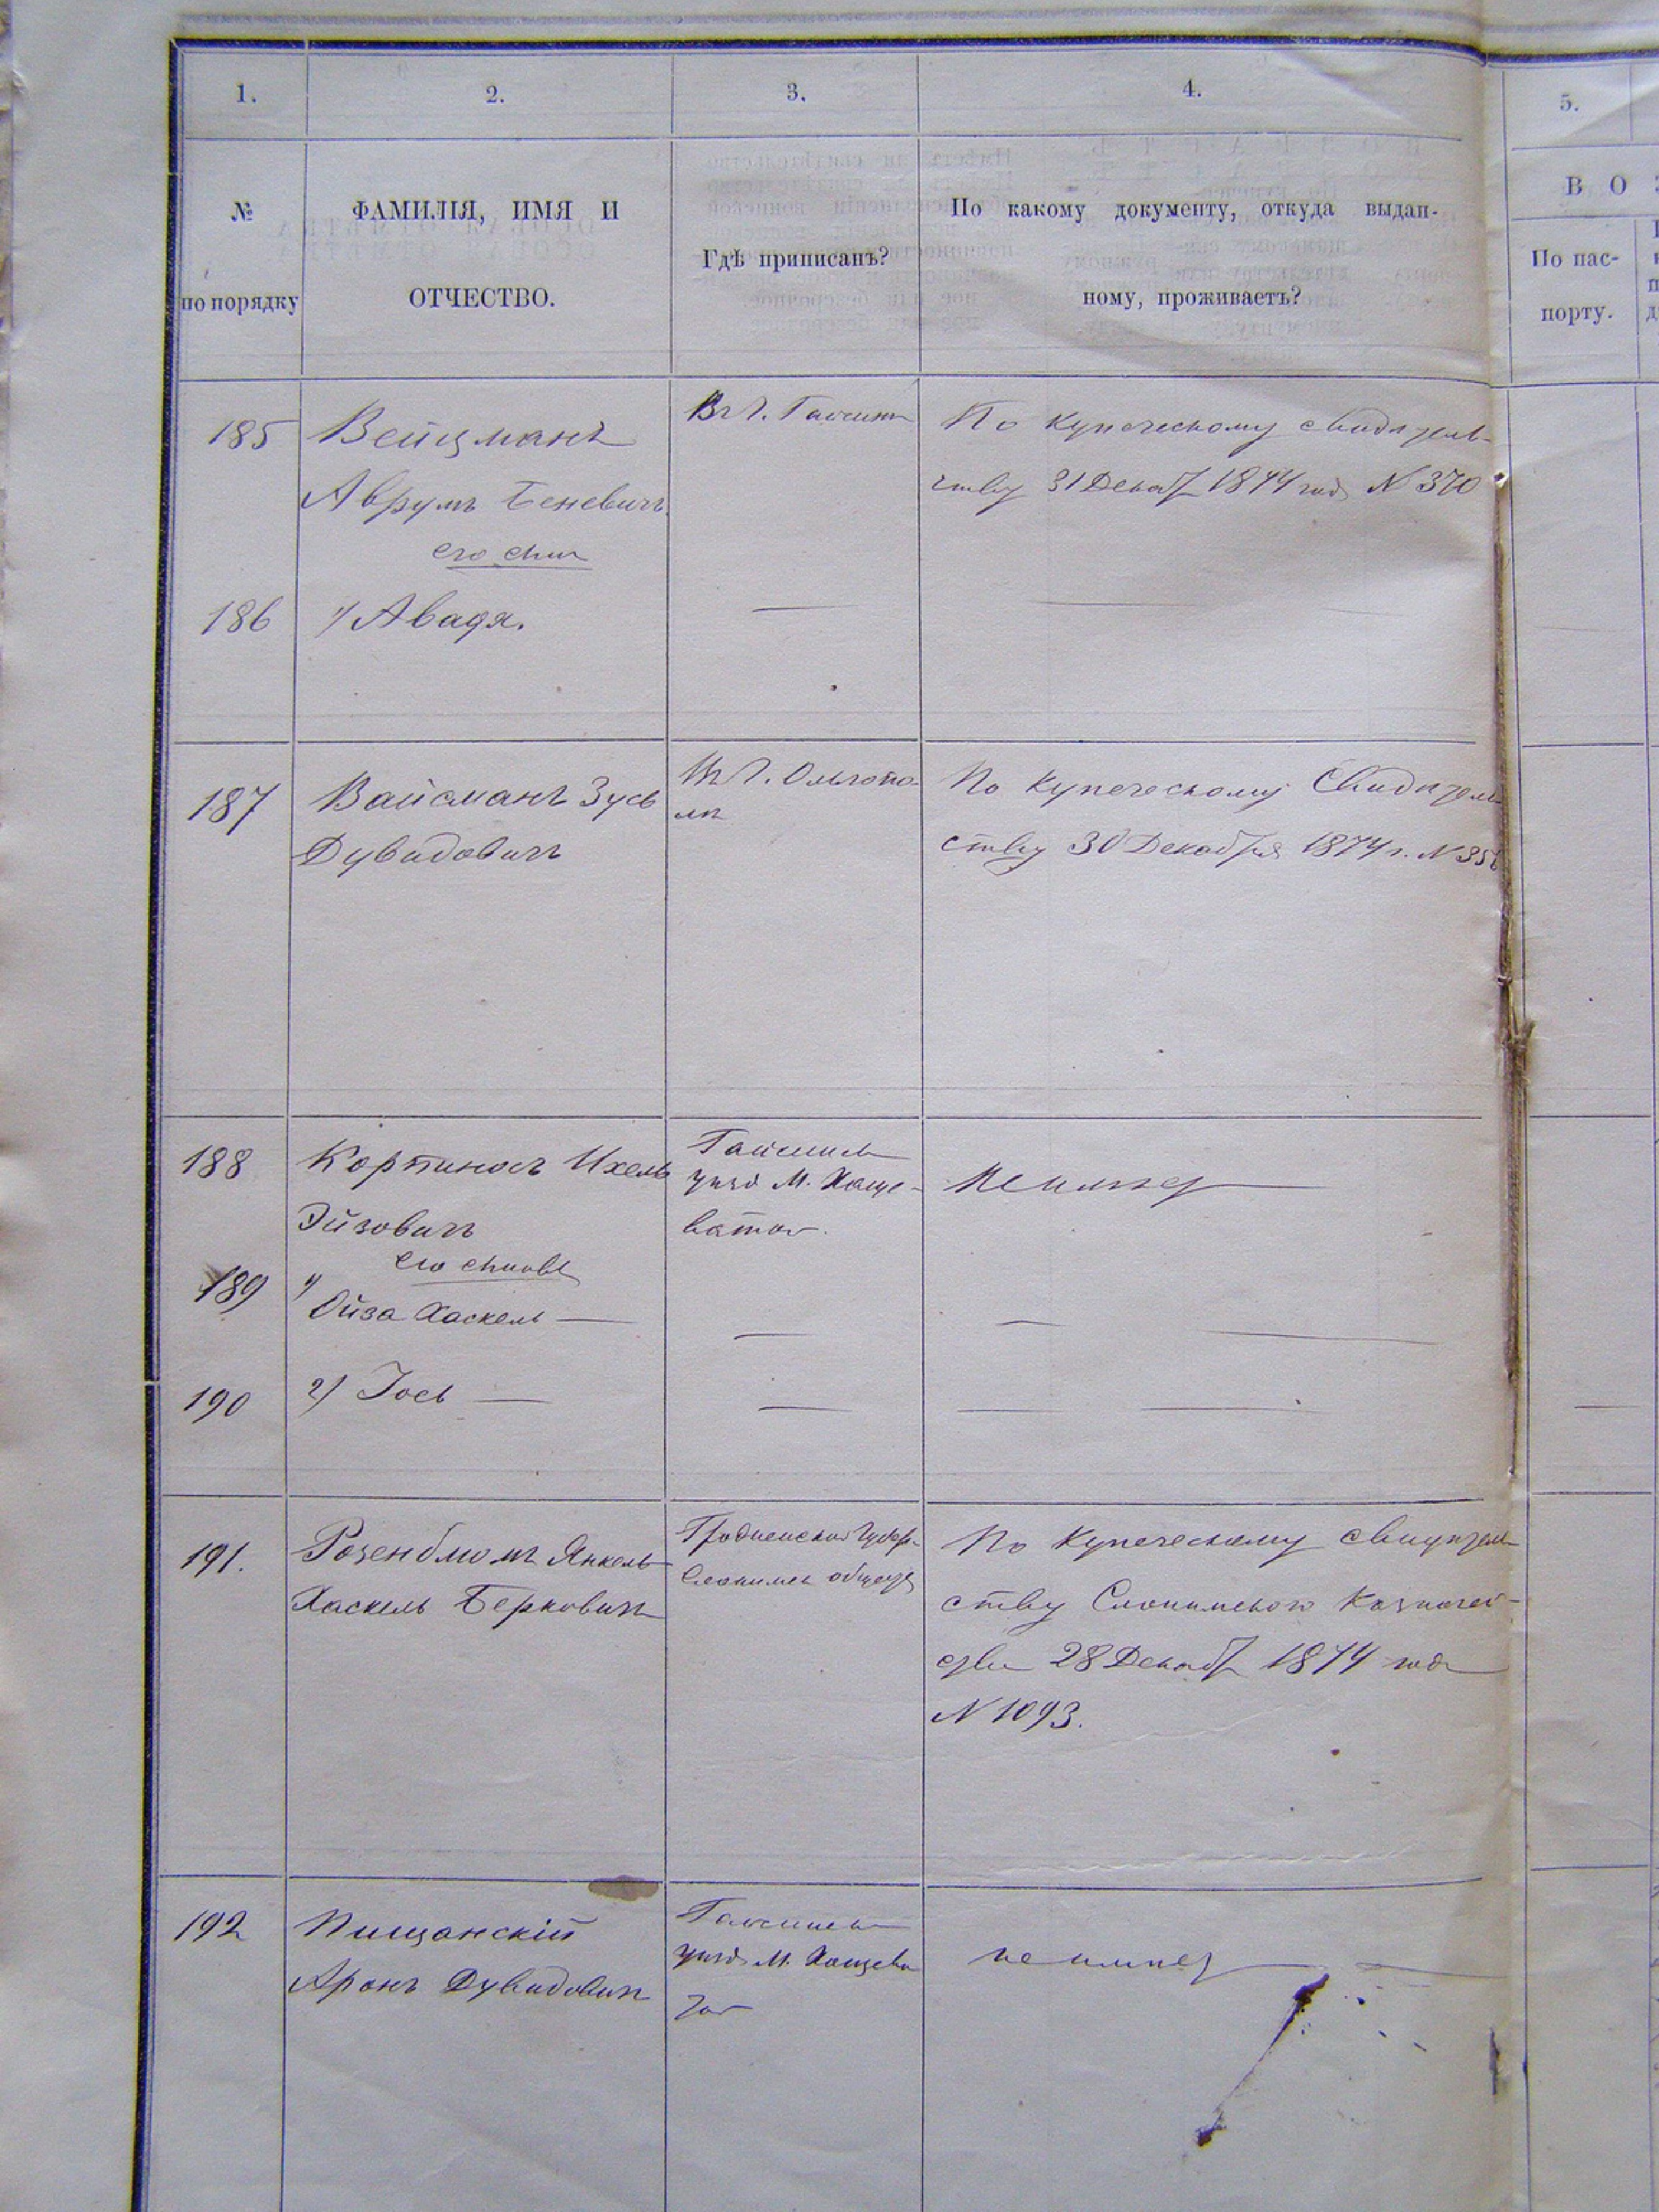 1.
2.
3.
4.
5.
№
по порядку
ФАМИЛІЯ, ИМЯ И
ОТЧЕСТВО.
Гдѣ приписанъ?
По какому документу, откуда выдан-
ному, проживаетъ?
В О
По пас-
порту.
185
Вейцманъ
Аврумъ Беневичъ
его сын
Въ г. Гайсинѣ
По купеческому свидѣтель-
ству 31 Декаб 1874 года N 370
186
1/ Авадя.
187
Вайсманъ Зусь
Дувидовичъ
Въ г. Ольгопо-
лѣ
По купеческому Свидѣтель
ству 30 Декабря 1874 г. N 356
188
Кортиносъ Ихель
Эйзовичъ
его сыновья
Гайсинск
уѣзд М. Хаще-
ватое.
Не имѣет
189
1/
Ойза Хаскель —
190
2/ Іось —
191.
Розенблюмъ Янкель
Хаскель Берковичъ
Гродненской Губер.
Слонимск общества
По купеческому свидѣтель
ству Слонимского Казначей-
ства 28 Декаб 1874 года
N 1093.
192
Пищанскій
Аронъ Дувидовичъ
Гайсинск
уѣзд М. Хащева
тое
не имѣет